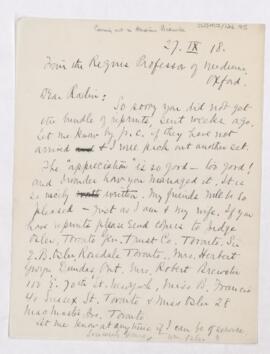 27. IX 18.
From the Regius Professor of Medicine,
Oxford.
Dear Rabin: So sorry you did not get
the bundle of reprints, sent weeks ago.
Let me know by p.c. if they have not
arrived & I will pick out another set.
The "appreciation" is so good - too good!
and I wonder how you managed it. It is
so nicely written. My friends will be so
pleased - just as I am & my wife. If you
have reprints please send copies to Judge
Osler, Toronto Gen. Trust Co. Toronto. Sir
E.B. Osler Rosedale Toronto, Mrs. Herbert
Gwyn, Dundas Ont. Mrs. Robert Brewster
New York, Miss B. Francis
40 Sussex St. Toronto & Miss Osler 28
Toronto.
Let me know at any time if I can be of service
Sincerely yours, Wm Osler